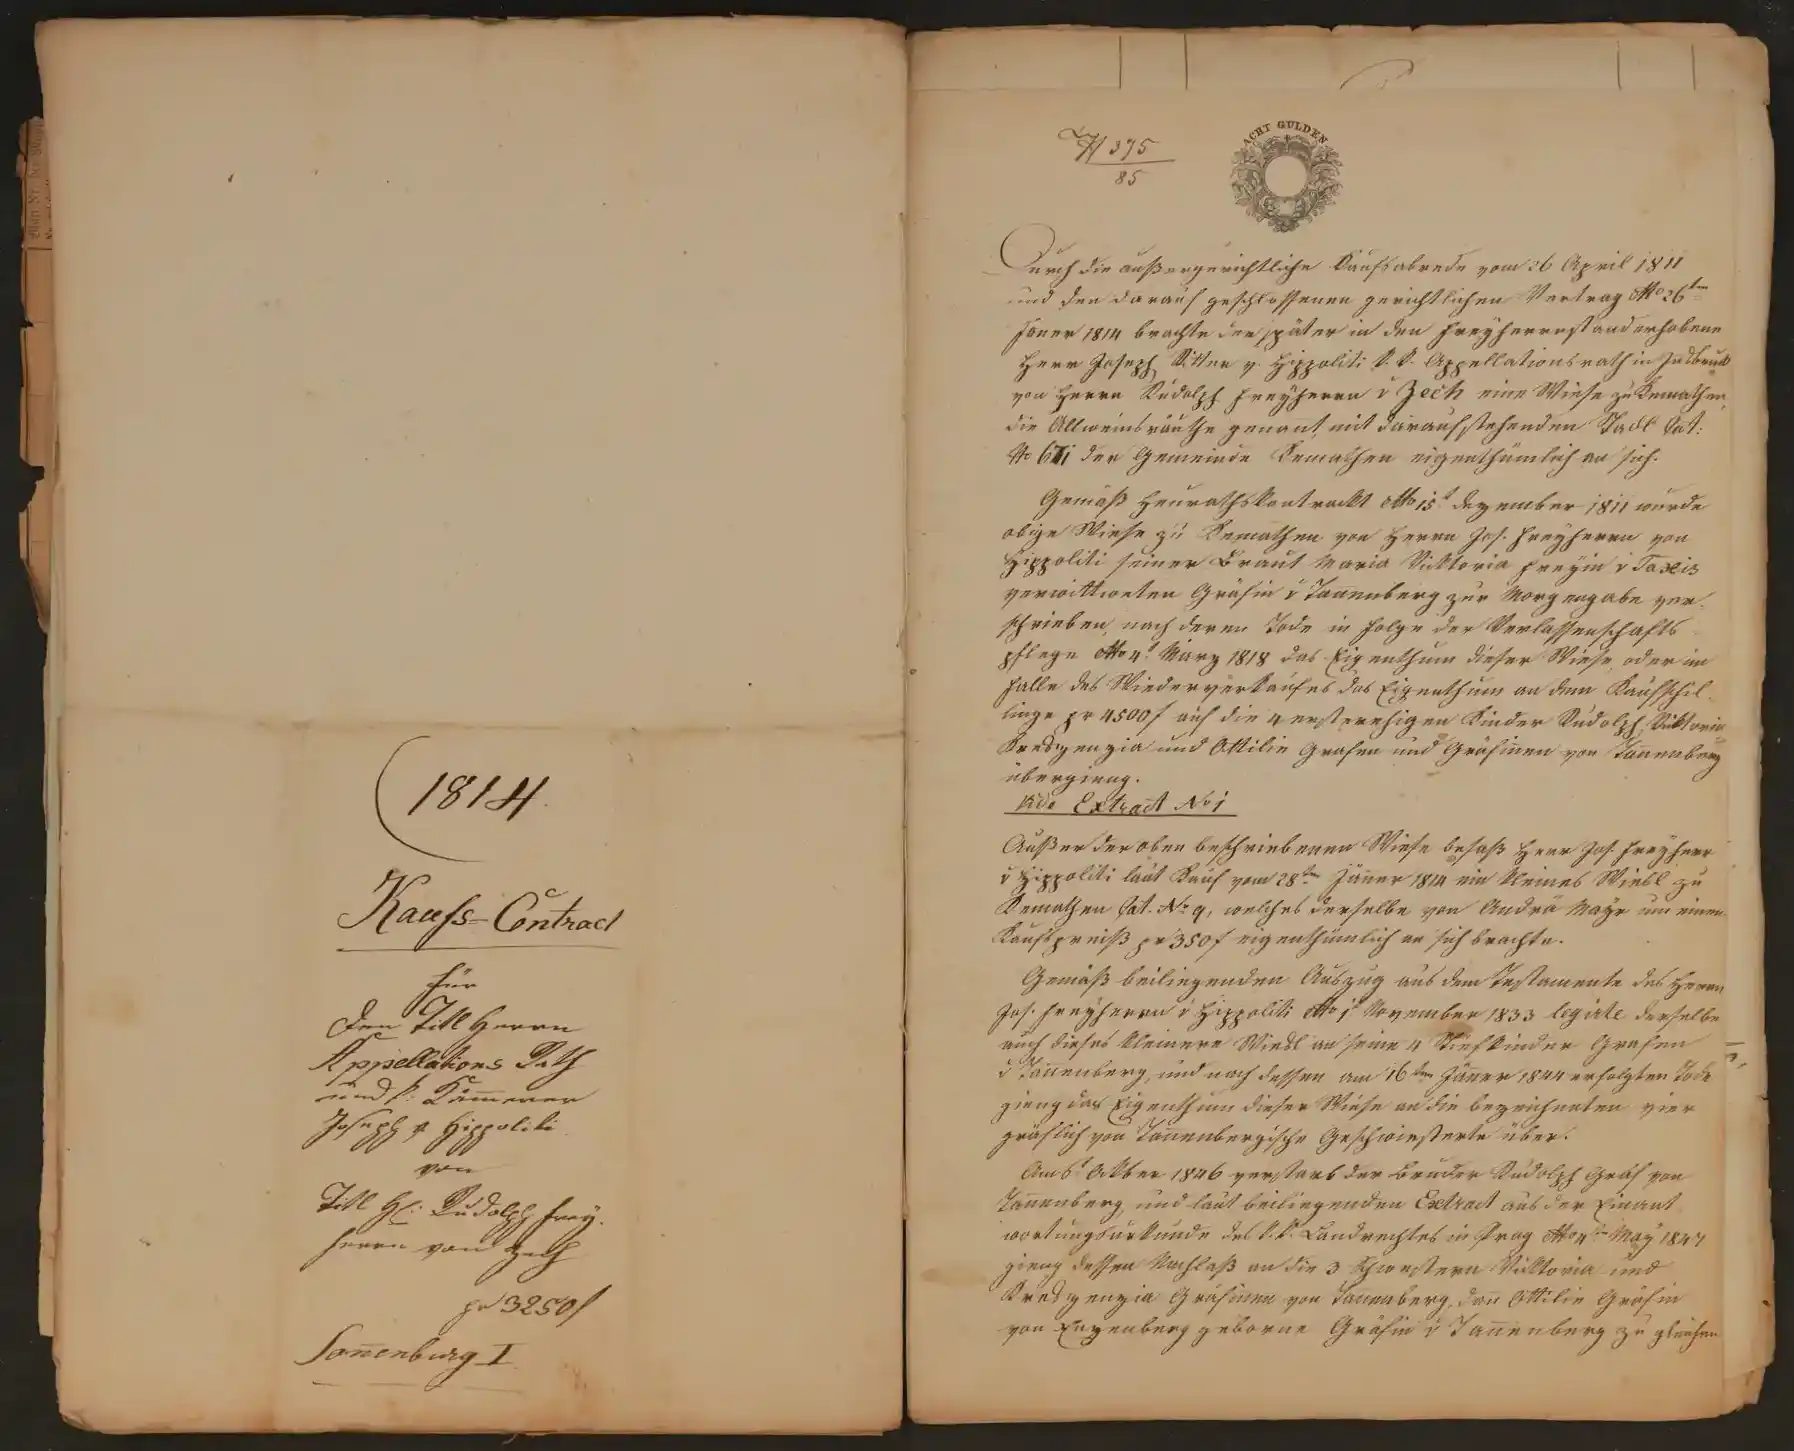 1814.
Kaufs-Contract
für
den Titl Herrn
Appellations Rath
und k: Kämmerer
Joseph v Hippoliti
von
Titl H: Rudolph Frey-
herrn von Zech
pr 3250 f
Sonnenburg I
375
85
ACHT GULDEN
Durch die außergerichtliche Kaufsabrede vom 26 April 1811
und den darauf geschlossenen gerichtlichen Vertrag dto 26ten
Jäner 1814 brachte der später in den Freyherrnstand erhobene
Herr Joseph Ritter v. Hippoliti k. k. Appellationsrath in Insbruck
von Herrn Rudolph Freyherrn v Zech eine Wiese zu Kemathen,
die Allweinsräuthe genant mit daraufstehenden Stadl Cat:
No der Gemeinde Kemathen eigenthümlich an sich.
Gemäß Heurathskontrackt dto 15t Dezember 1811 wurde
obige Wiese zu Kemathen von Herrn Jos. Freyherrn von
Hippoliti seiner Braut Maria Vicktoria Freyin v Taxis
verwittweten Gräfin v Tannenberg zur Morgengabe ver-
schrieben, nach deren Tode in Folge der Verlassenschafts-
pflege dto 4t März 1818 das Eigenthum dieser Wiese, oder im
Falle des Wiederverkaufes das Eigenthum an dem Kaufschil-
linge pr 4500 f auf die 4 ersterehigen Kinder Rudolph, Vicktoria
Kreszenzia und Ottilie Grafen und Gräfinen von Tannenberg
übergieng.
vide Extract No 1
Außer der oben beschriebenen Wiese besaß Herr Jos. Freyherr
v Hippoliti laut Kauf vom 28ten Jäner 1814 ein kleines Wiesl zu
Kemathen Cat. No 9, welches derselbe von Andrä Mayr um einen
Kaufspreiß pr 350 f eigenthümlich an sich brachte.
Gemäß beiliegenden Auszug aus dem Testamente des Herrn
Jos. Freyherrn v Hippoliti dto 1t November 1833 legirte derselbe
auch dieses kleinere Wiesl an seine 4 Stiefkinder Grafen
v Tannenberg, und nach dessen am 16ten Jäner 1844 erfolgten Tode
gieng das Eigenthum dieser Wiese an die bezeichneten vier
gräflich von Tannenbergische Geschwisterte über.
Am 6t Oktber 1846 verstarb der Bruder Rudolph Graf von
Tannenberg, und laut beiliegenden Extract aus der Einant-
wortungsurkunde des k. k. Landrechtes in Prag dto 4ten May 1847
gieng dessen Nachlaß an die 3 Schwestern Vicktoria und
Kreszenzia Gräfinen von Tannenberg, dan Ottilie Gräfin
von Enzenberg geborne Gräfin v Tannenberg zu gleichen